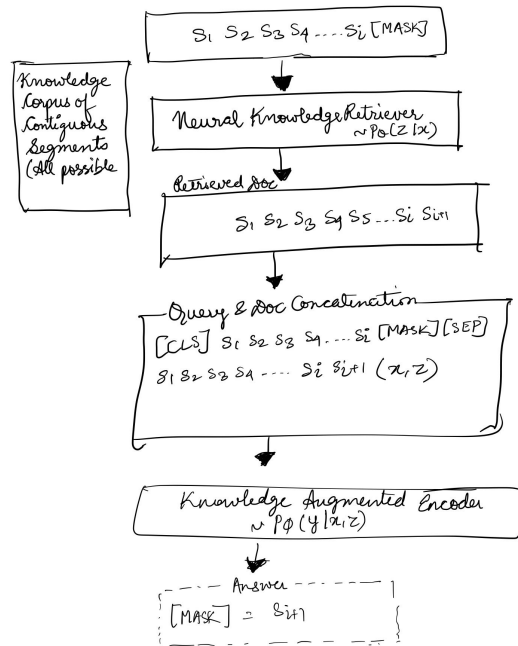 S1 S2 S3 S4 .....Si [MASK]
Knowledge
Corpus of
Contiguous
Segments
(All possible
Neural Knowledge Retriever
~Pθ(Z|x)
Retrieved Doc
S1 S2 S3 S4 S5 ... Si Si+1
Query & Doc Concatination
[CLS] S1 S2 S3 S4 .... Si [MASK] [SEP]
S1 S2 S3 S4 .... Si Si+1 (x,z)
Knowledge Augmented Encoder
~ Pφ(y|x,z)
Answer
[MASK] = Si+1